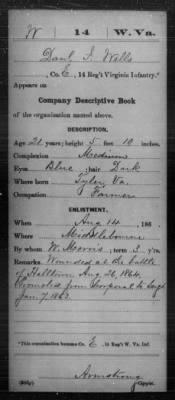 W | 14 | W. Va.
Danl. F. Wells
, Co. E, 14 Reg't Virginia Infantry.*
Appears on
Company Descriptive Book
of the organization named above.
DESCRIPTION.
Age 21 years; height 5 feet 10 inches.
Complexion Medium
Eyes Blue; hair Dark
Where born Tyler, Va.
Occupation Farmer
ENLISTMENT.
When Aug 14, 186
Where Middlebourne
By whom W. Morris; term 3 y'rs.
Remarks Wounded at the battle
of Halltown Aug 26, 1864.
Promoted from Corporal to Sergt
Jan. 7, 186
*This organization became Co. E, 14 Reg't W. Va. Inf.
Armstrong
Copyist.